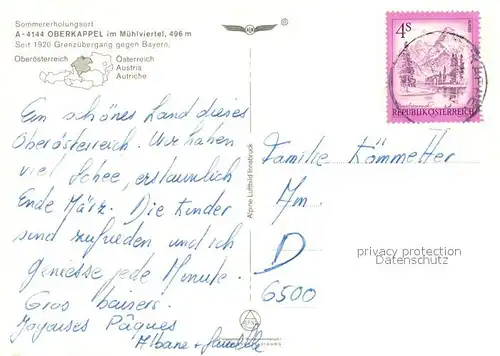 Sommererholungsort
A-4144 OBERKAPPEL im Mühlviertel, 496 m
Seit 1920 Grenzübergang gegen Bayern,
Oberösterreich Österreich
Austria
Autriche
®
4s
REPUBLIK ÖSTERREICH
Ein schönes Land dieses
Oberösterreich. Wir haben
viel Schee, erstaunlich
Ende März. Die Kinder
sind zufrieden und ich
geniesse jede Minute.
Gros baisers.
Joyeuses Pâques
Albane + famille
Alpine Luftbild Innsbruck
Familie Kömmetter
D
6500
privacy protection
Datenschutz